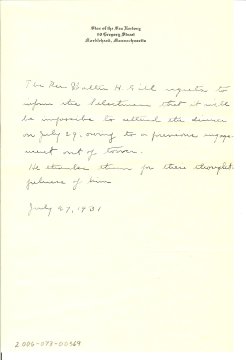 Star of the Sea Rectory
80 Gregory Street
Marblehead, Massachusetts
The Rev Walter H. Gill regrets to
inform the Selectmen that it will
be impossible to attend the dinner
on July 29, owing to a previous engage-
ment out of town.
He thanks them for their thought-
fulness of him
July 27, 1931
2006-073-00569